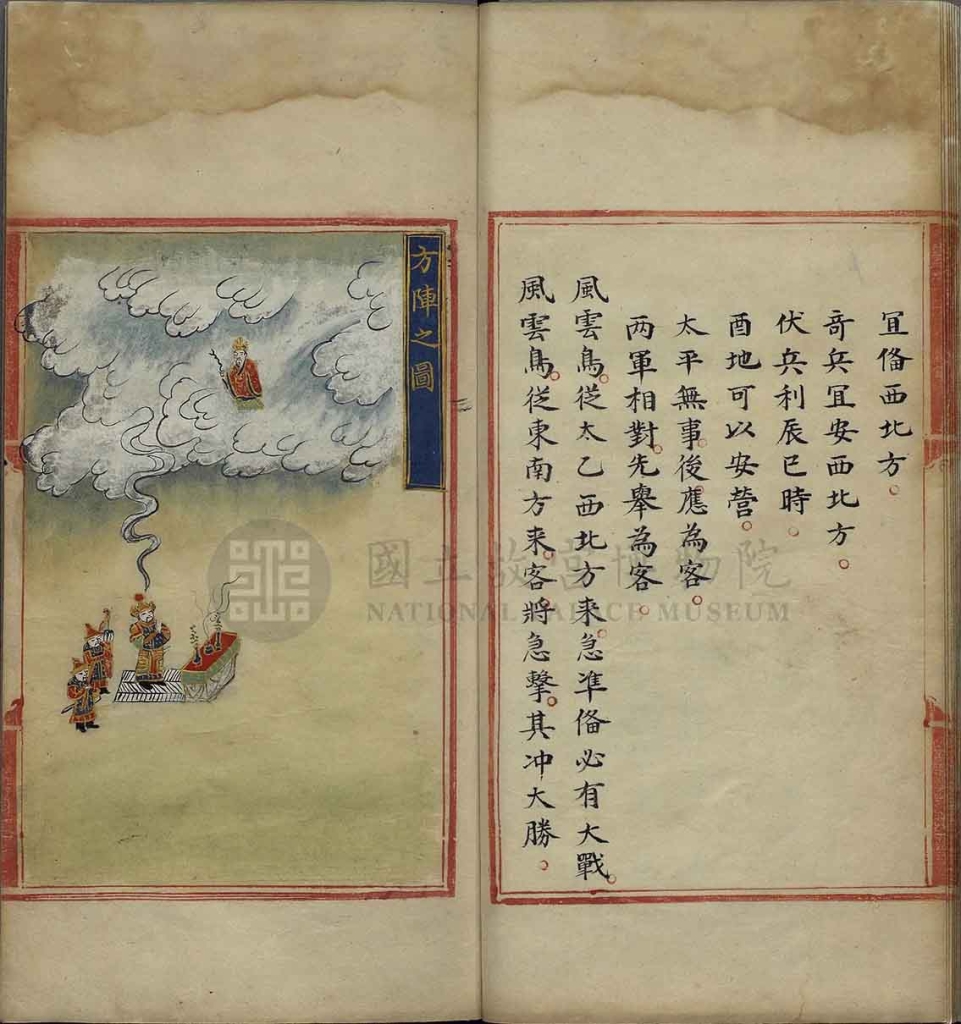 冝俻西北方。
奇兵冝安西北方。
伏兵利辰巳時。
酉地可以安營。
太平無事。後應為客。
两軍相對。先舉為客。
風雲鳥。從太乙西北方来。急凖俻必有大戰。
風雲鳥。從東南方来。客將急擊。其冲大勝。
方陣之圖
國立故宮博物院
NATIONAL PALACE MUSEUM